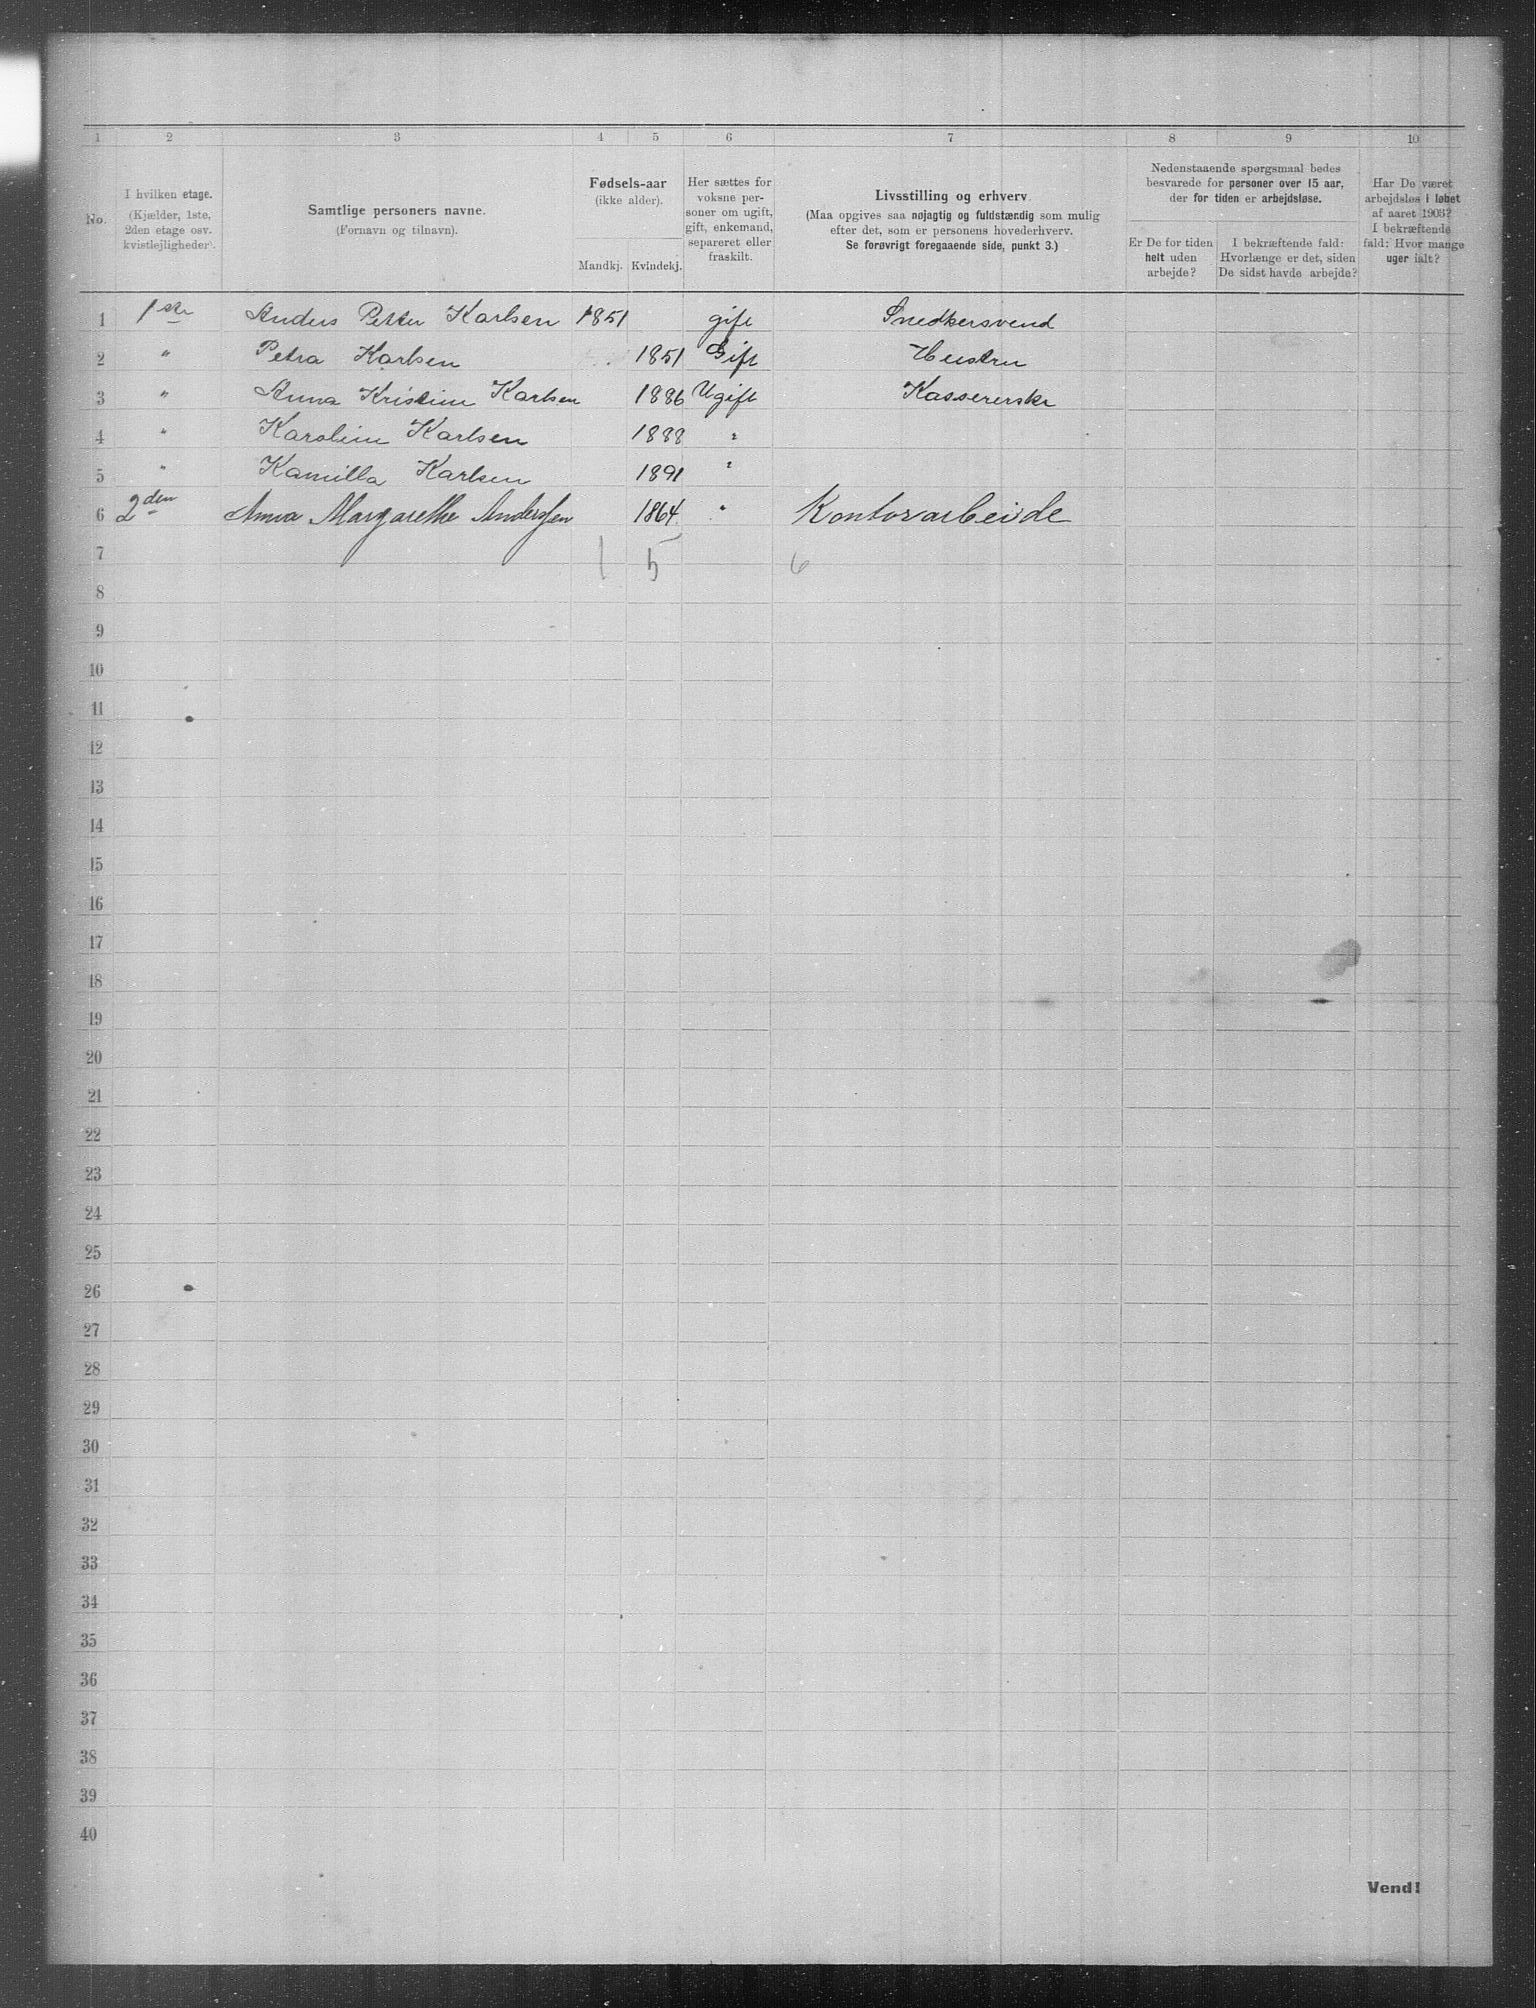 1 2 3 4 5 6 7 8 9 10
No.
I hvilken etage.
(Kjælder, 1ste,
2den etage osv.
kvistlejligheder).
Samtlige personers navne.
(Fornavn og tilnavn).
Fødsels-aar
(ikke alder).
Mandkj. Kvindekj.
Her sættes for
voksne per-
soner om ugift,
gift, enkemand,
separeret eller
fraskilt.
Livsstilling og erhverv.
(Maa opgives saa nøjagtig og fuldstændig som mulig
efter det, som er personens hovederhverv.
Se forøvrigt foregaaende side, punkt 3.)
Nedenstaaende spørgsmaal bedes
besvarede for personer over 15 aar,
der for tiden er arbejdsløse.
Er De for tiden
helt uden
arbejde?
I bekræftende fald:
Hvorlænge er det, siden
De sidst havde arbejde?
Har De været
arbejdsløs i løbet
af aaret 1903?
I bekræftende
fald: Hvor mange
uger ialt?
1 1ste Anders Petter Karlsen 1851 gift Snedkersvend
2 " Petra Karlsen 1851 Gift Hustru
3 " Anna Kristine Karlsen 1886 Ugift Kassererske
4 " Karoline Karlsen 1888 "
5 " Kamilla Karlsen 1891 "
6 2den Anna Margarethe Anderssen 1864 " Kontorarbeide
7 1 5 6
8
9
10
11
12
13
14
15
16
17
18
19
20
21
22
23
24
25
26
27
28
29
30
31
32
33
34
35
36
37
38
39
40
Vend!